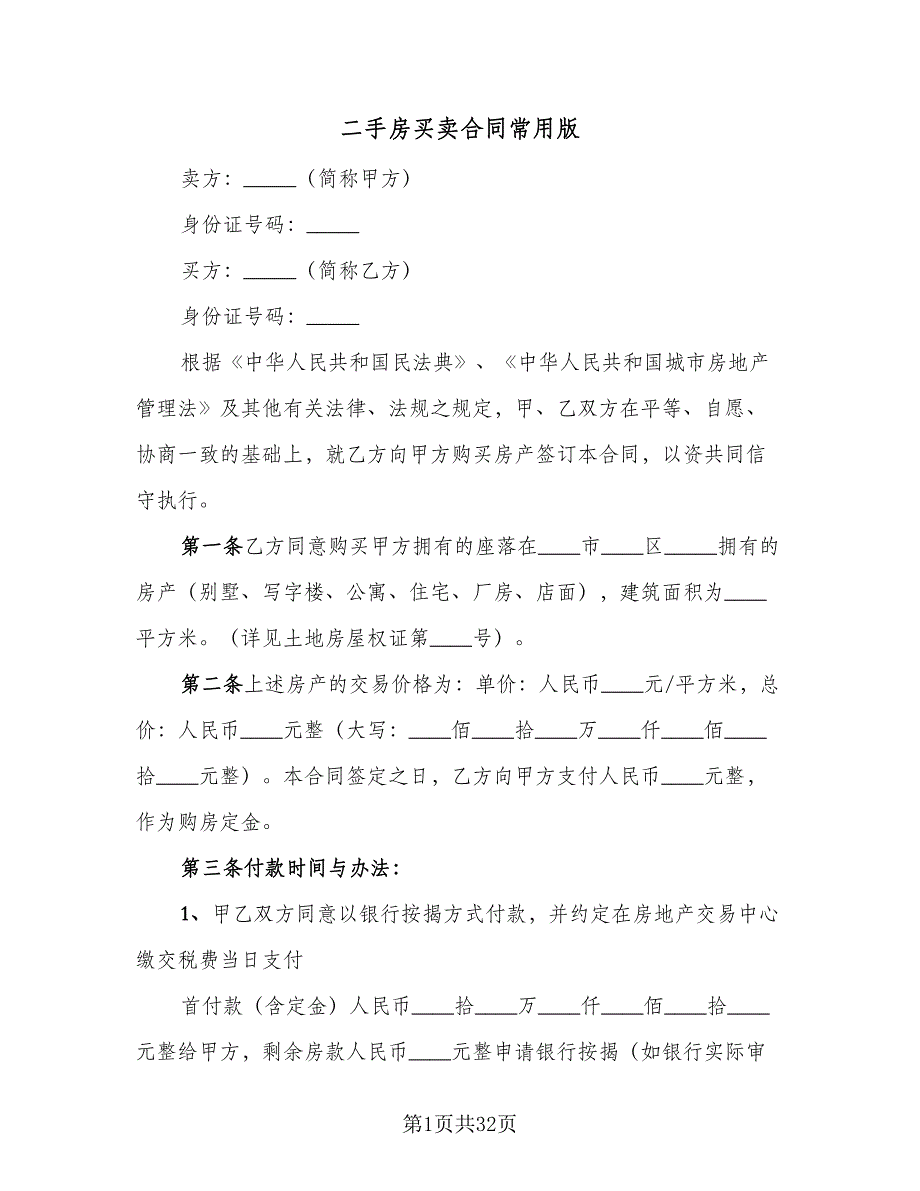 二手房买卖合同常用版
卖方：_____（简称甲方）
身份证号码：_____
买方：_____（简称乙方）
身份证号码：_____
根据《中华人民共和国民法典》、《中华人民共和国城市房地产
管理法》及其他有关法律、法规之规定，甲、乙双方在平等、自愿、
协商一致的基础上，就乙方向甲方购买房产签订本合同，以资共同信
守执行。
第一条乙方同意购买甲方拥有的座落在____市____区_____拥有的
房产（别墅、写字楼、公寓、住宅、厂房、店面），建筑面积为____
平方米。（详见土地房屋权证第____号）。
第二条上述房产的交易价格为：单价：人民币____元/平方米，总
价：人民币____元整（大写：____佰____拾____万____仟____佰____
拾____元整）。本合同签定之日，乙方向甲方支付人民币____元整，
作为购房定金。
第三条付款时间与办法：
1、甲乙双方同意以银行按揭方式付款，并约定在房地产交易中心
缴交税费当日支付
首付款（含定金）人民币____拾____万____仟____佰____拾____
元整给甲方，剩余房款人民币____元整申请银行按揭（如银行实际审
第1页共32页